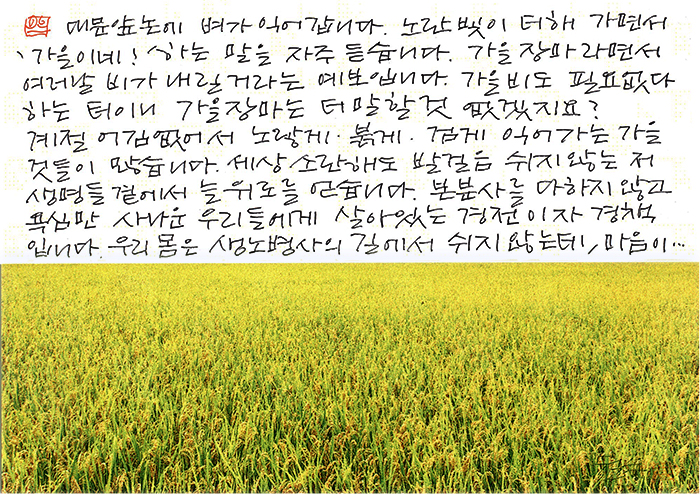 대문앞논에 벼가 익어갑니다. 노란 빛이 더해 가면서
'가을이네! 하는 말을 자주 듣습니다. 가을 장마라면서
여러날 비가 내릴거라는 예보입니다. 가을비도 필요없다
하는 터이니 가을장마는 더 말할것 없겠지요?
계절 어김없어서 노랗게·붉게·검게 익어가는 가을
것들이 많습니다. 세상 소란해도 발걸음 쉬지 않는 저
생명들 곁에서 늘 위로를 얻습니다. 본분사를 다하지 않고
욕심만 사나운 우리들에게 살아있는 경전이자 경책
입니다. 우리 몸은 생노병사의 길에서 쉬지 않는데, 마음이…